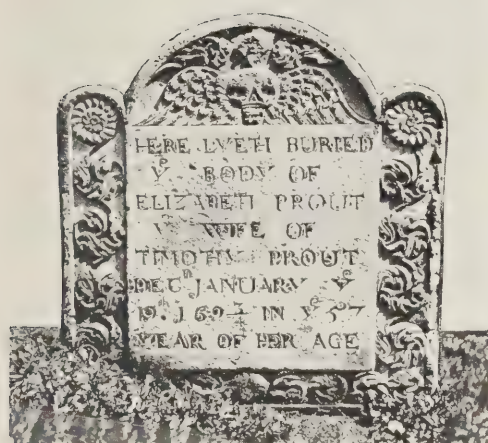 HERE LYETH BURIED
Yᵉ BODY OF
ELIZABETH PROUT
Yᵉ WIFE OF
TIMOTHY PROUT
DECᵗ JANUARY Yᵉ
19ᵗʰ 169¾ IN Yᵉ 57
YEAR OF HER AGE